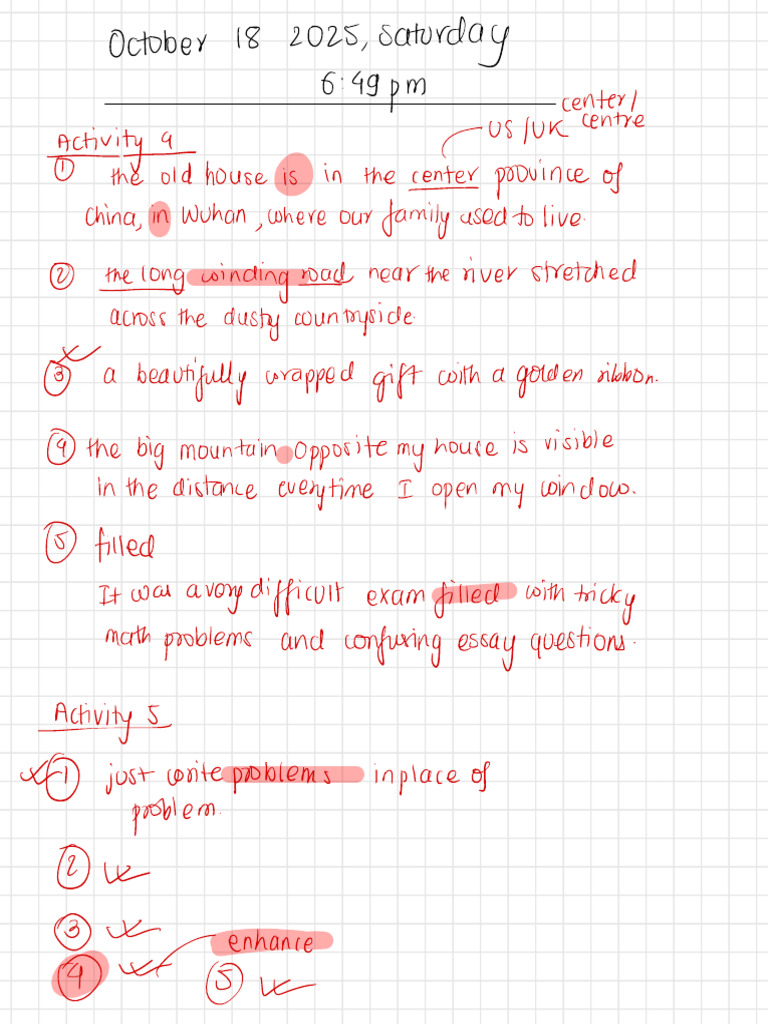 October 18 2025, Saturday
6:49 pm
center/
US/UK centre
Activity 4
① the old house is in the center province of
China, in Wuhan, where our family used to live.
② the long winding road near the river stretched
across the dusty countryside.
③ a beautifully wrapped gift with a golden ribbon.
④ the big mountain opposite my house is visible
in the distance everytime I open my window.
⑤ filled
It was a very difficult exam filled with tricky
math problems and confusing essay questions.
Activity 5
① just write problems in place of
problem.
②
③
enhance
④ ⑤